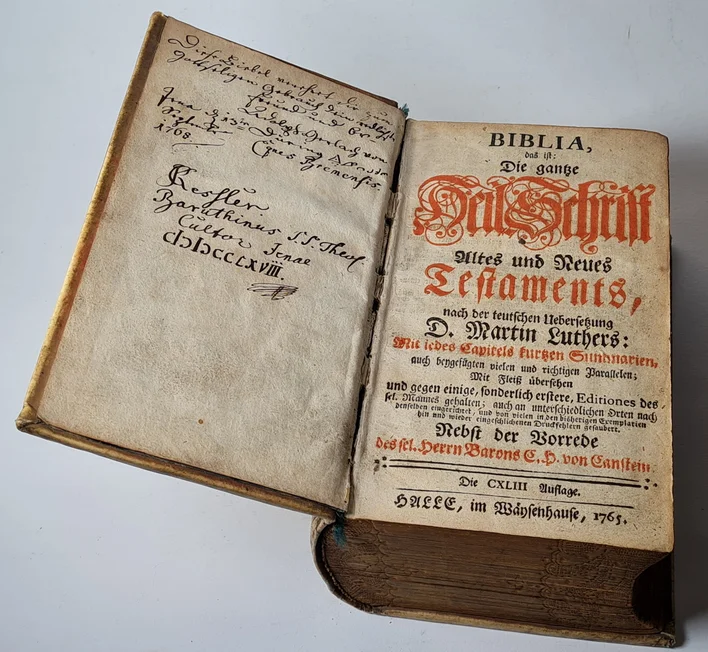 Diese Bibel verehrt die zum
gottseligen Gebrauch dein redlichster
Freund und
Gerlach von
Jena d.
1768.
Bremensis
Kessler
Baruthinus S.S. Theol.
Cultor Jenae
CIƆIƆCCLXVIII.
BIBLIA,
das ist:
Die gantze
Heil. Schrift
Altes und Neues
Testaments,
nach der teutschen Uebersetzung
D. Martin Luthers:
Mit jedes Capitels kurtzen Summarien,
auch beygefügten vielen und richtigen Parallelen;
Mit Fleiß übersehen
und gegen einige, sonderlich erstere, Editiones des
sel. Mannes gehalten; auch an unterschiedlichen Orten nach
denselben eingerichtet, und von vielen in den bisherigen Exemplarien
hin und wieder eingeschlichenen Druckfehlern gesaubert.
Nebst der Vorrede
des sel. Herrn Barons C. H. von Canstein.
Die CXLIII Auflage.
HALLE, im Wäysenhause, 1765.